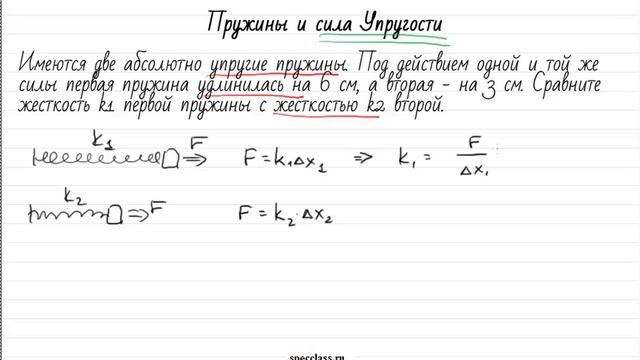 Пружины и сила Упругости
Имеются две абсолютно упругие пружины. Под действием одной и той же
силы первая пружина удлинилась на 6 см, а вторая - на 3 см. Сравните
жесткость k1 первой пружины с жесткостью k2 второй.
k₁ F F = k₁Δx₁ ⇒ k₁ = F/Δx₁
k₂ F F = k₂·Δx₂
specclass.ru